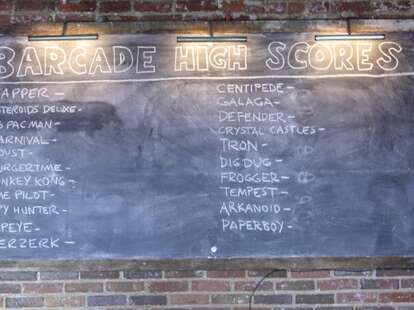 BARCADE HIGH SCORES
APPER -
STEROIDS DELUXE -
S PACMAN -
ARNIVAL -
OUST -
URGERTIME -
NKEY KONG -
ME PILOT -
PY HUNTER -
PEYE -
ERZERK -
CENTIPEDE -
GALAGA -
DEFENDER -
CRYSTAL CASTLES -
TRON -
DIG DUG -
FROGGER -
TEMPEST -
ARKANOID -
PAPERBOY -